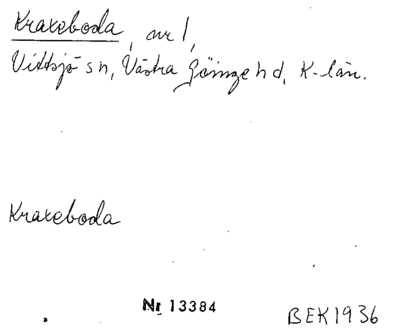 Kraxeboda, nr 1,
Vittsjö sn, Västra Göinge hd, K-län.
Kraxeboda
Nr 13384
BEK1936